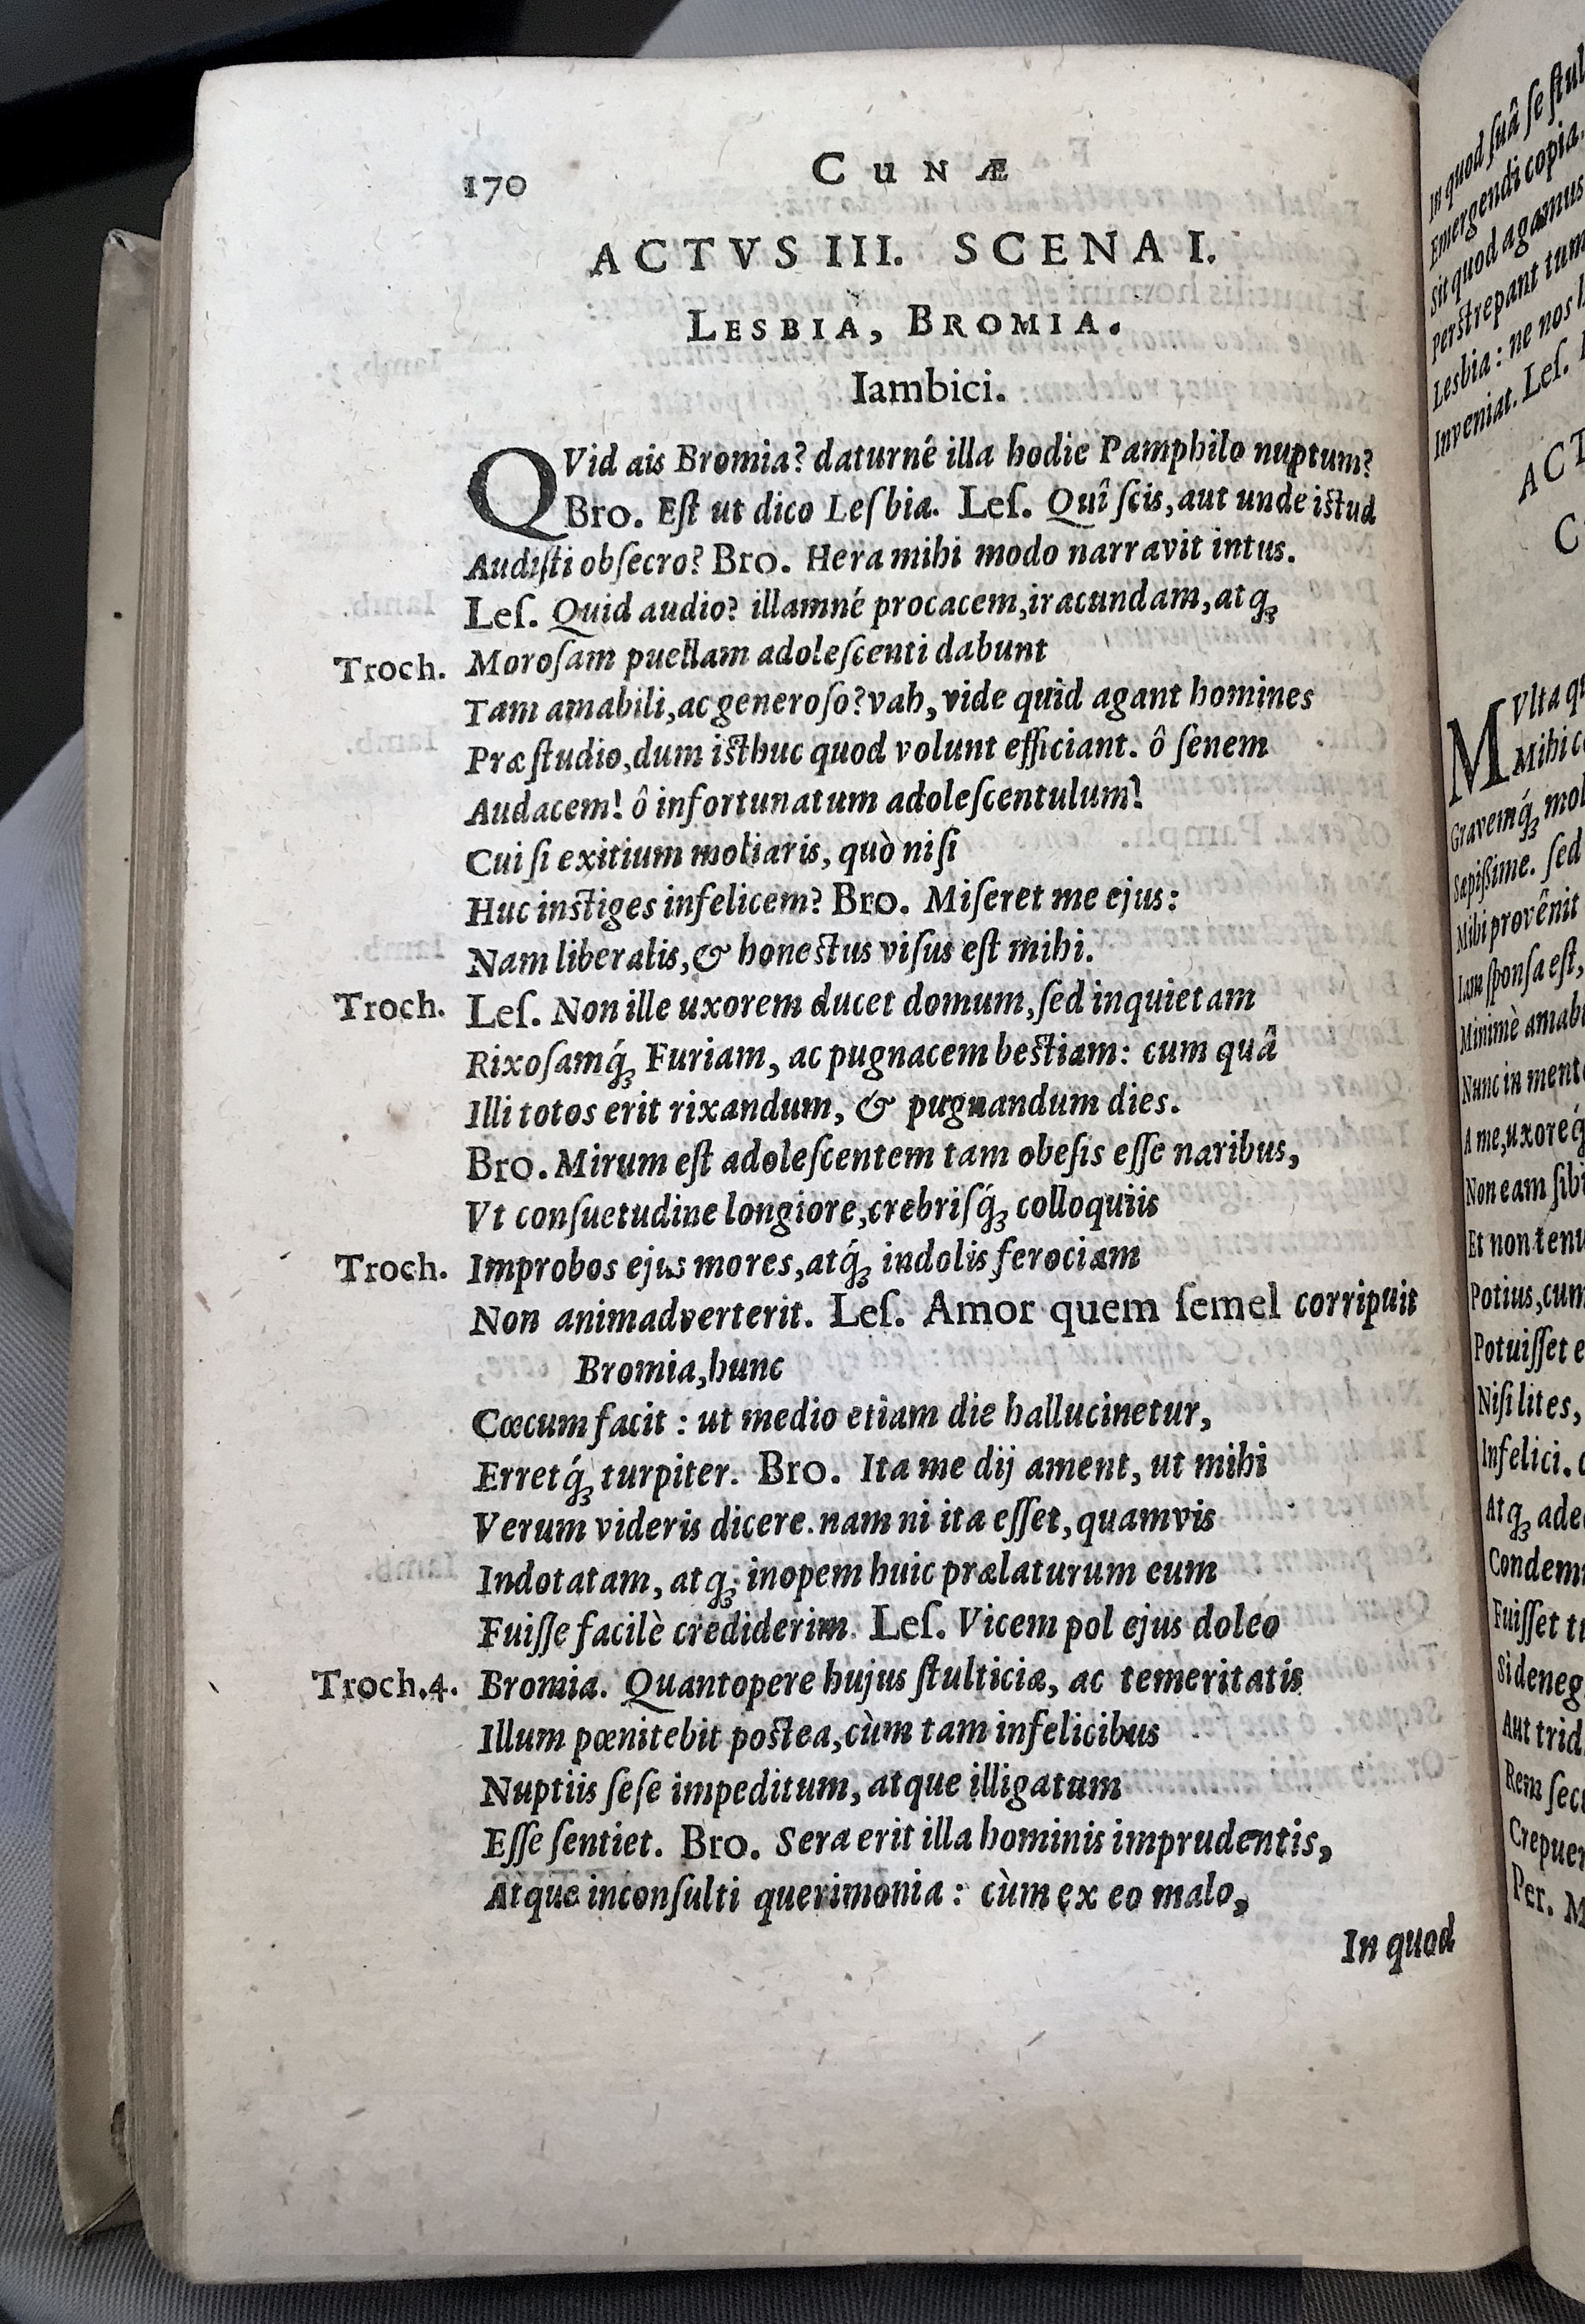 170
CUNÆ
ACTVS III. SCENA I.
LESBIA, BROMIA.
Iambici.
QVid ais Bromia? daturné illa hodie Pamphilo nuptum?
Bro. Eſt ut dico Leſbia. Leſ. Quî ſcis, aut unde istud
Audiſti obſecro? Bro. Hera mihi modo narravit intus.
Leſ. Quid audio? illamné procacem, iracundam, atq;
Troch. Moroſam puellam adoleſcenti dabunt
Tam amabili, ac generoſo? vah, vide quid agant homines
Præ ſtudio, dum isthuc quod volunt efficiant. ô ſenem
Audacem! ô infortunatum adoleſcentulum!
Cui ſi exitium moliaris, quò niſi
Huc instiges infelicem? Bro. Miſeret me ejus:
Nam liberalis, & honestus viſus eſt mihi.
Troch. Leſ. Non ille uxorem ducet domum, ſed inquietam
Rixoſamq́; Furiam, ac pugnacem bestiam: cum quâ
Illi totos erit rixandum, & pugnandum dies.
Bro. Mirum eſt adoleſcentem tam obeſis eſſe naribus,
Vt conſuetudine longiore, crebriſq́; colloquiis
Troch. Improbos ejus mores, atq́; indolis ferociam
Non animadverterit. Leſ. Amor quem ſemel corripuit
Bromia, hunc
Cœcum facit: ut medio etiam die hallucinetur,
Erretq́; turpiter. Bro. Ita me dij ament, ut mihi
Verum videris dicere. nam ni ita eſſet, quamvis
Indotatam, atq; inopem huic prælaturum eum
Fuiſſe facilè crediderim. Leſ. Vicem pol ejus doleo
Troch. 4. Bromia. Quantopere hujus ſtulticiæ, ac temeritatis
Illum pœnitebit postea, cùm tam infelicibus
Nuptiis ſeſe impeditum, atque illigatum
Eſſe ſentiet. Bro. Sera erit illa hominis imprudentis,
Atque inconſulti querimonia: cùm ex eo malo,
In quod
In quod ſuâ ſe
Emergendi copia.
Sit quod agamus
Perstrepant
Lesbia: ne nos
Inveniat. Leſ.
MVlta
Mihi
Gravemq́;
Sapiſsime. ſed
Mihi provênit
Iam ſponſa eſt,
Minimè
Nunc in
A me,
Non eam
Et non
Potius, cum
Potuiſſet
Niſi lites,
Infelici.
Atq;
Fuiſſet
Rem
Per.